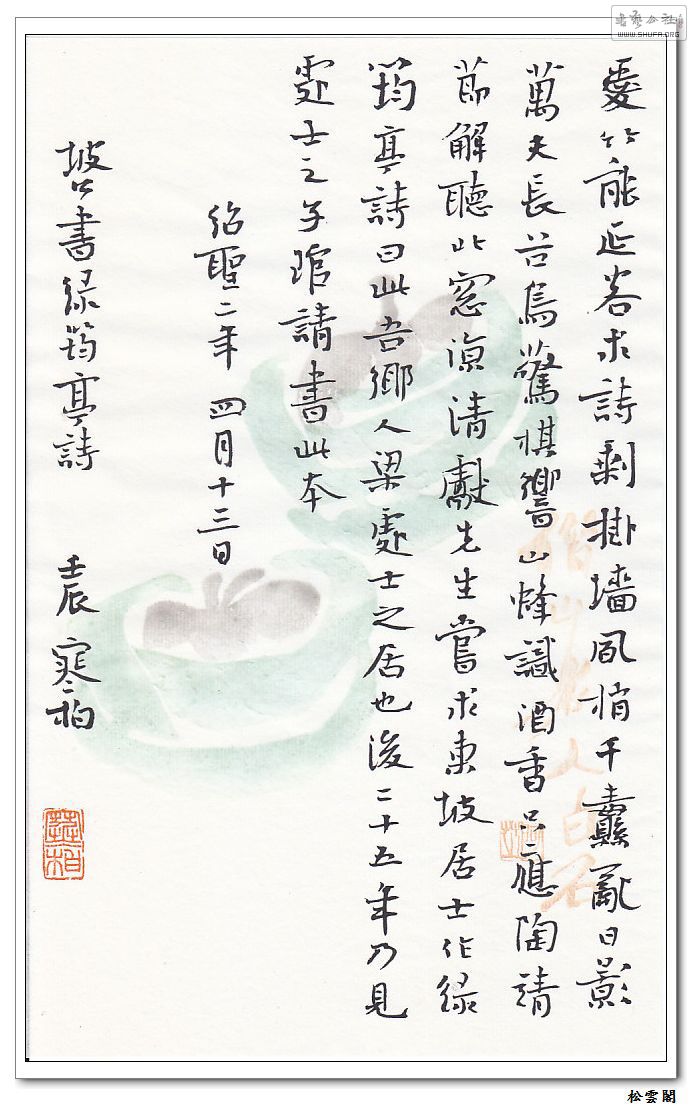 書藝公社
WWW.SHUFA.ORG
愛竹能延客求詩剩掛墻風梢千纛亂日影
萬夫長谷鳥驚棋響山蜂識酒香只應陶靖
節解聽北窓涼清獻先生嘗求東坡居士作綠
筠亭詩曰此吾鄉人梁處士之居也後二十五年乃見
處士之子琯請書此本
紹聖二年四月十三日
坡公書綠筠亭詩 壬辰 寒柏
松雲閣